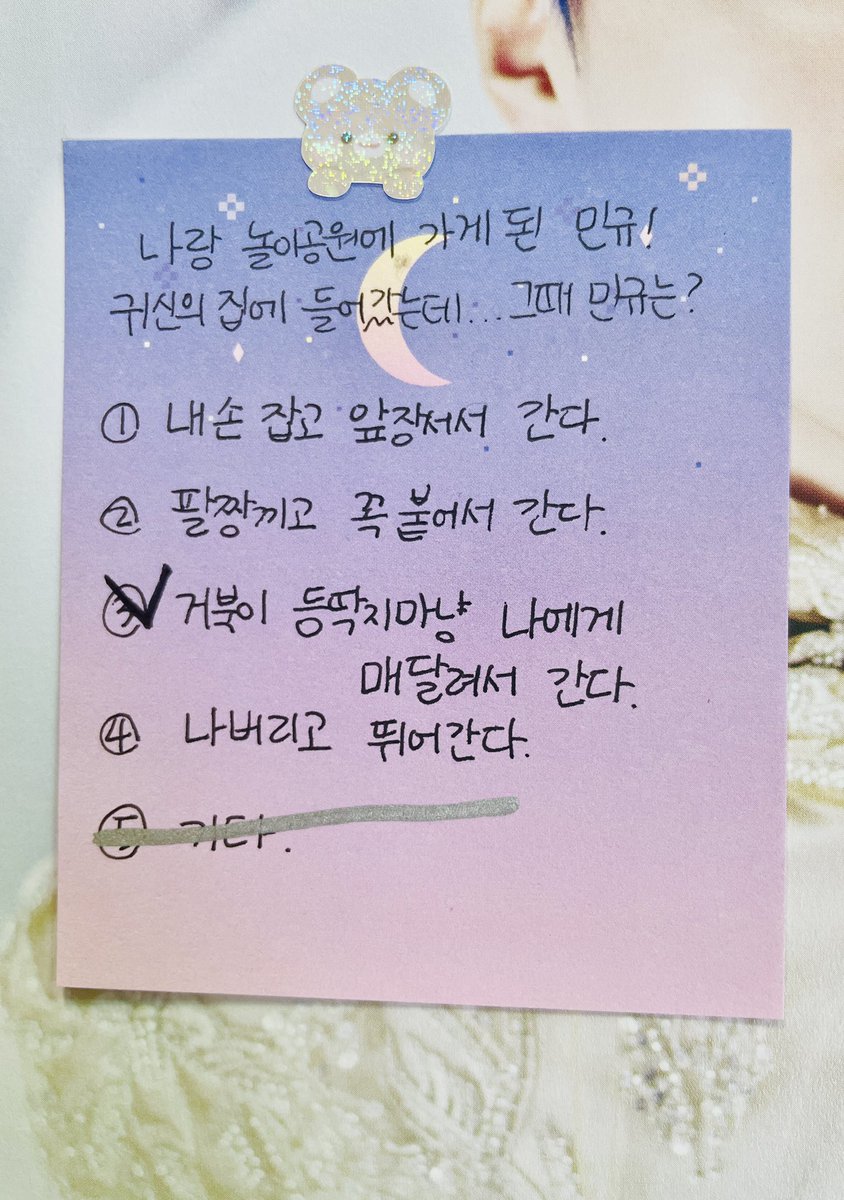 나랑 놀이공원에 가게 된 민규!
귀신의 집에 들어갔는데... 그때 민규는?
① 내 손 잡고 앞장서서 간다.
② 팔짱끼고 꼭 붙어서 간다.
③ 거북이 등딱지마냥 나에게
매달려서 간다.
④ 나버리고 뛰어간다.
⑤ 기타.